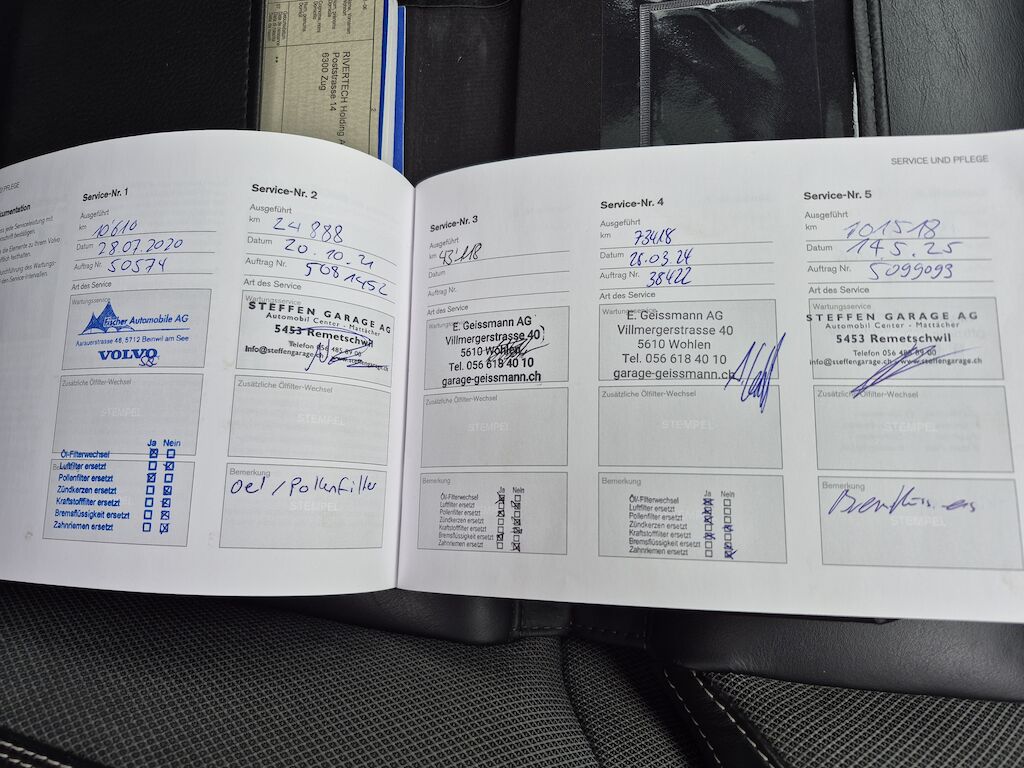 RIVERTECH Holding A
Poststrasse 14
6300 Zug
D PFLEGE
SERVICE UND PFLEGE
kumentation
Service-Nr. 1
Ausgeführt
km 10'610
Datum 28.07.2020
Auftrag Nr. 50574
Art des Service
Wartungsservice
Fischer Automobile AG
Aarauerstrasse 46, 5712 Beinwil am See
VOLVO
Zusätzliche Ölfilter-Wechsel
STEMPEL
Ja Nein
Öl-Filterwechsel
Luftfilter ersetzt
Pollenfilter ersetzt
Zündkerzen ersetzt
Kraftstofffilter ersetzt
Bremsflüssigkeit ersetzt
Zahnriemen ersetzt
Service-Nr. 2
Ausgeführt
km 24888
Datum 20.10.21
Auftrag Nr. 5081452
Art des Service
Wartungsservice
STEFFEN GARAGE AG
Automobil Center - Mattächer
5453 Remetschwil
Telefon 056 485 89 00
info@steffengarage.ch www.steffengarage.ch
Zusätzliche Ölfilter-Wechsel
STEMPEL
Bemerkung
Oel / Pollenfilter
STEMPEL
Service-Nr. 3
Ausgeführt
km 43'118
Datum
Auftrag Nr.
Art des Service
E. Geissmann AG
Villmergerstrasse 40
5610 Wohlen
Tel. 056 618 40 10
garage-geissmann.ch
Zusätzliche Ölfilter-Wechsel
STEMPEL
Bemerkung
Ja Nein
Öl-Filterwechsel
Luftfilter ersetzt
Pollenfilter ersetzt
Zündkerzen ersetzt
Kraftstofffilter ersetzt
Bremsflüssigkeit ersetzt
Zahnriemen ersetzt
Service-Nr. 4
Ausgeführt
km 73418
Datum 26.03.24
Auftrag Nr. 38422
Art des Service
E. Geissmann AG
Villmergerstrasse 40
5610 Wohlen
Tel. 056 618 40 10
garage-geissmann.ch
Zusätzliche Ölfilter-Wechsel
STEMPEL
Bemerkung
Ja Nein
Öl-Filterwechsel
Luftfilter ersetzt
Pollenfilter ersetzt
Zündkerzen ersetzt
Kraftstofffilter ersetzt
Bremsflüssigkeit ersetzt
Zahnriemen ersetzt
Service-Nr. 5
Ausgeführt
km 101518
Datum 14.5.25
Auftrag Nr. 5099093
Art des Service
Wartungsservice
STEFFEN GARAGE AG
Automobil Center - Mattächer
5453 Remetschwil
Telefon 056 485 89 00
info@steffengarage.ch www.steffengarage.ch
Zusätzliche Ölfilter-Wechsel
STEMPEL
Bemerkung
STEMPEL